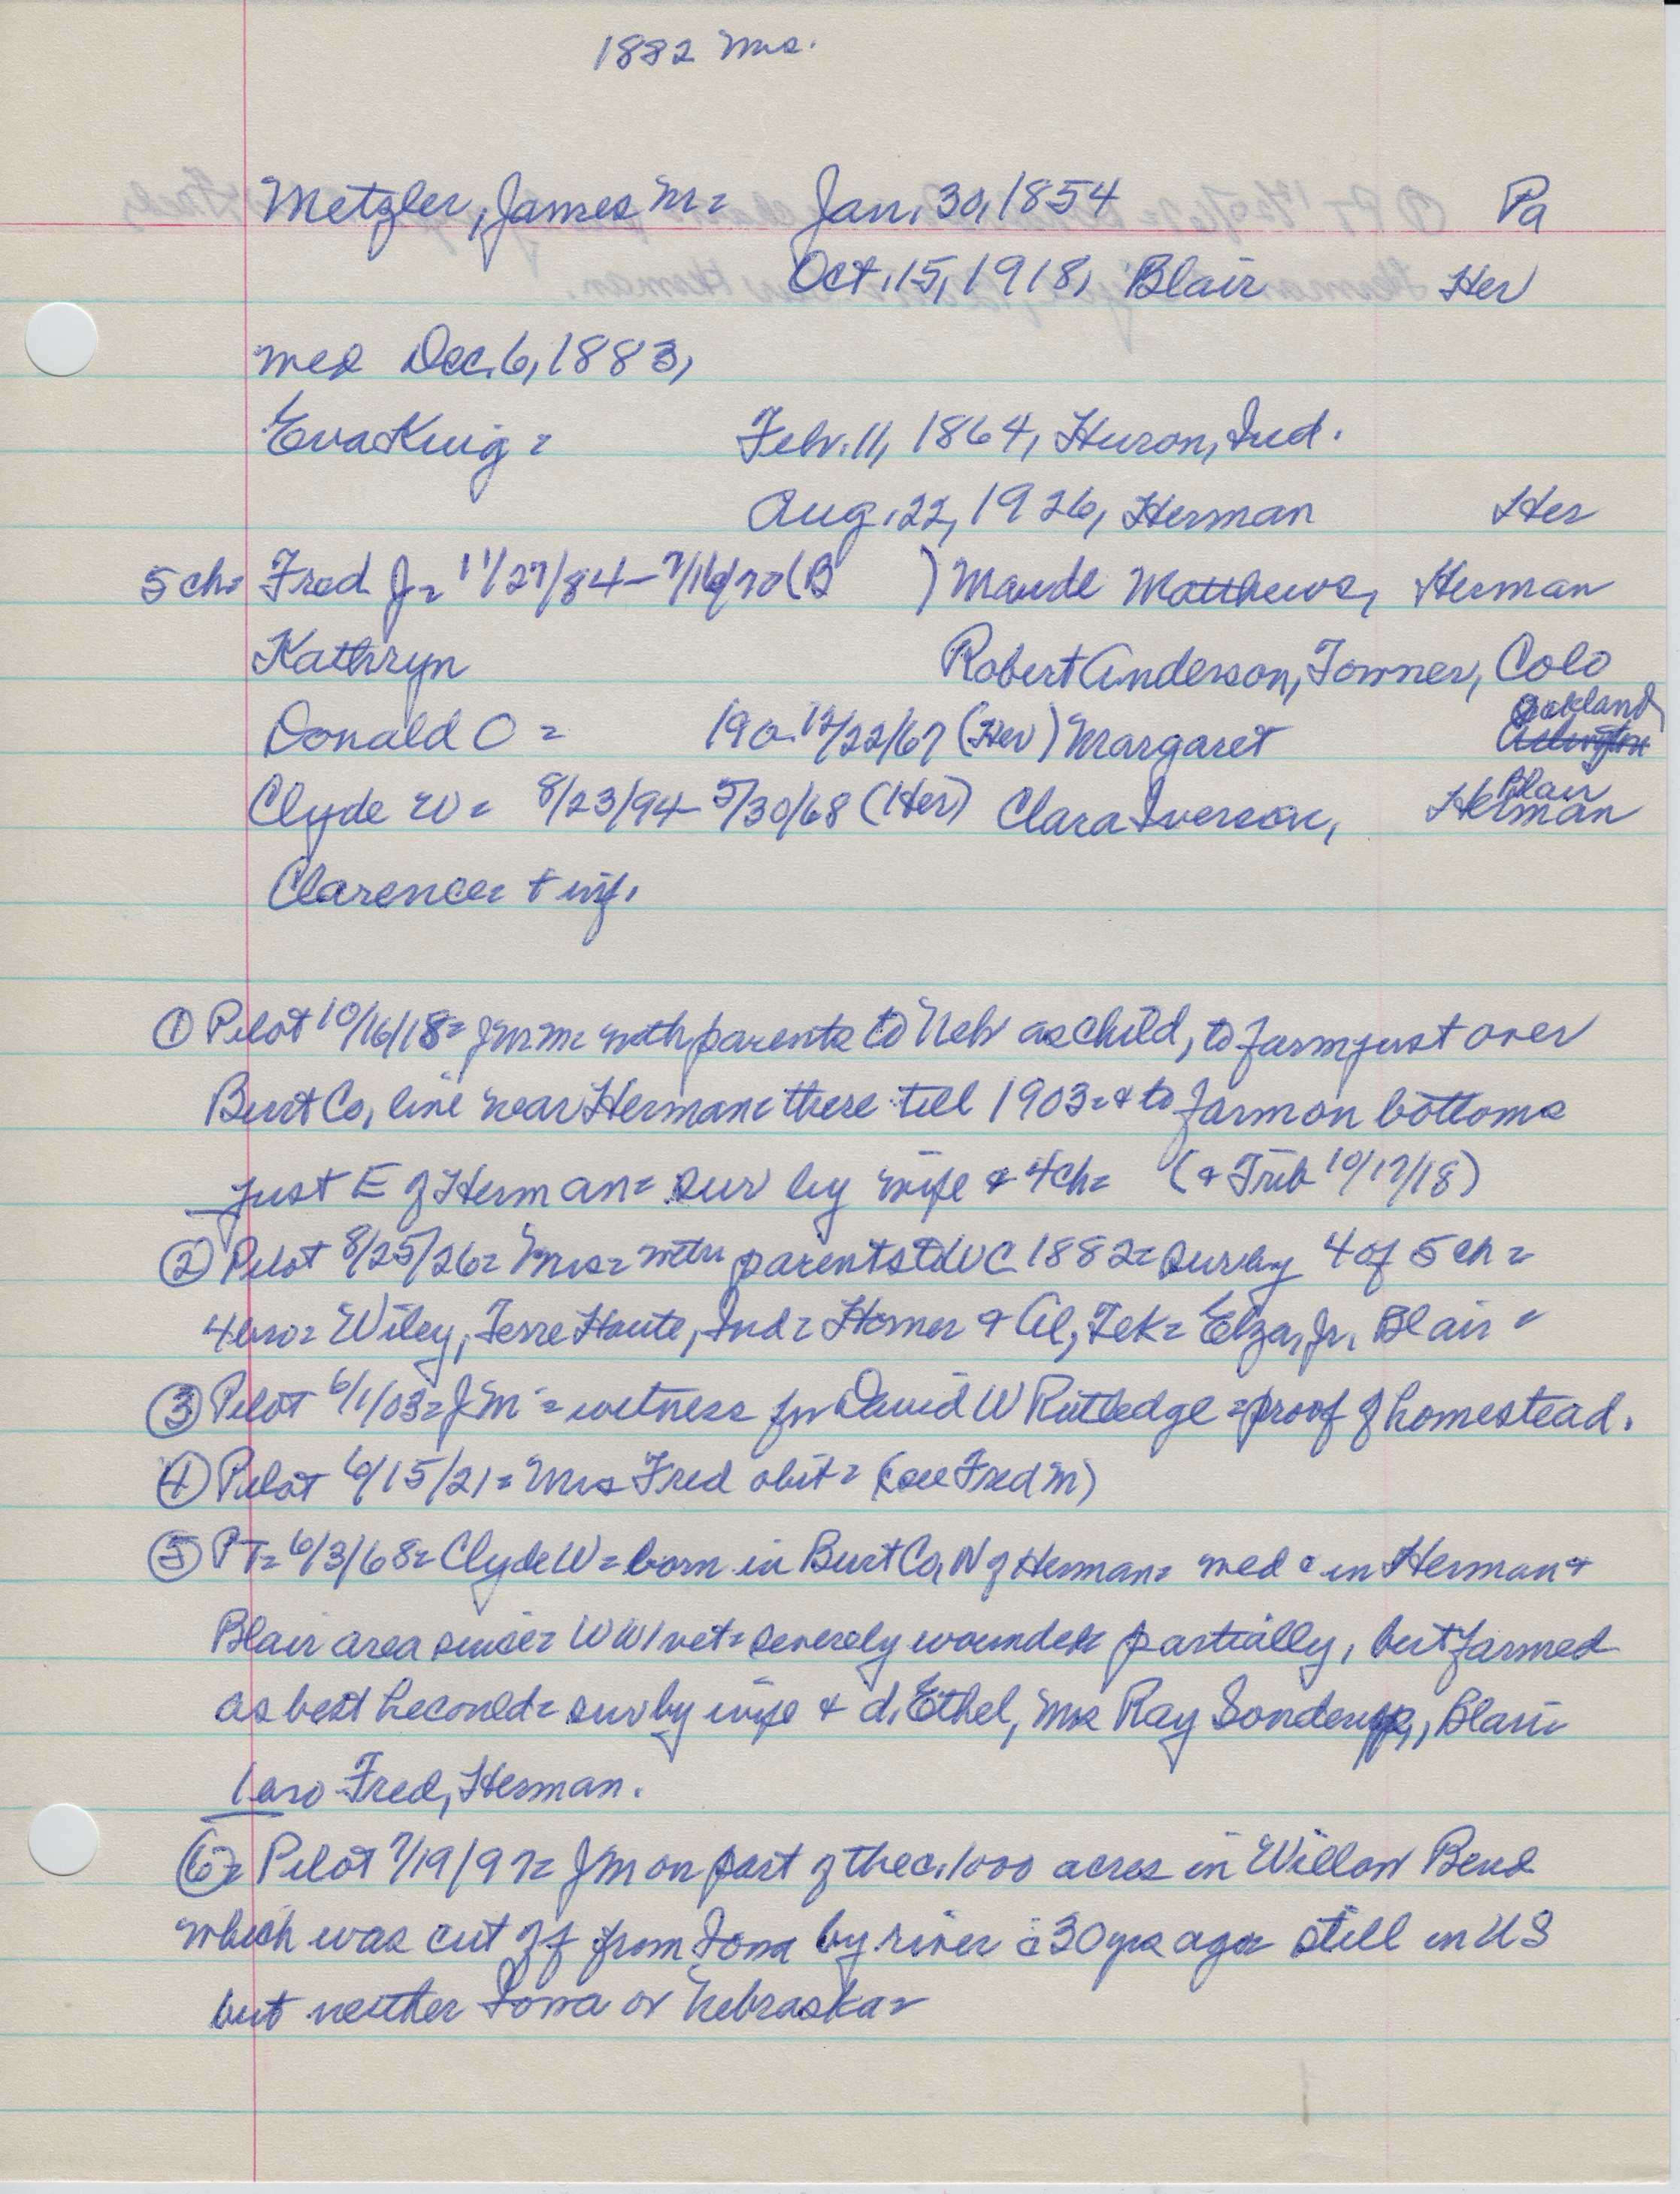 1882 Mrs.
Metzler, James M = Jan. 30, 1854 Pa
Oct. 15, 1918, Blair Her
med Dec. 6, 1883,
Eva King = Feb. 11, 1864, Huron, Ind.
Aug. 22, 1926, Herman Her
5 ch = Fred J = 11/27/84 - 7/16/70 (B ) Maude Matthews, Herman
Kathryn Robert Anderson, Towner, Colo
Oakland
Donald O = 190 12/22/67 (Her) Margaret
Blair
Clyde W = 8/23/94 - 5/30/68 (Her) Clara Iverson, Herman
Clarence = + inf.
① Pilot 10/16/18 = JM = with parents to Neb as child, to farm just over
Burt Co, line near Herman = there till 1903 = & to farm on bottoms
just E of Herman = sur by wife & 4 ch = (& Trib 10/17/18)
② Pilot 8/25/26 = Mrs = with parents to WC 1882 = sur by 4 of 5 ch =
4 bro = Wiley, Terre Haute, Ind = Homer & Al, Tek = Elza, Jr, Blair =
③ Pilot 6/1/03 = JM = witness for David W Rutledge = proof of homestead.
④ Pilot 6/15/21 = Mrs Fred obit = (see Fred M)
⑤ PT = 6/3/68 = Clyde W = born in Burt Co, N of Herman = med & in Herman &
Blair area since = WW1 vet = severely wounded partially, but farmed
as best he could = sur by wife & d. Ethel, Mrs Ray Sonderup, Blair
1 bro Fred, Herman.
⑥ = Pilot 7/19/97 = JM on part of the c. 1000 acres in Willow Bend
which was cut off from Iowa by river c 30 yrs ago = still in US
but neither Iowa or Nebraska =